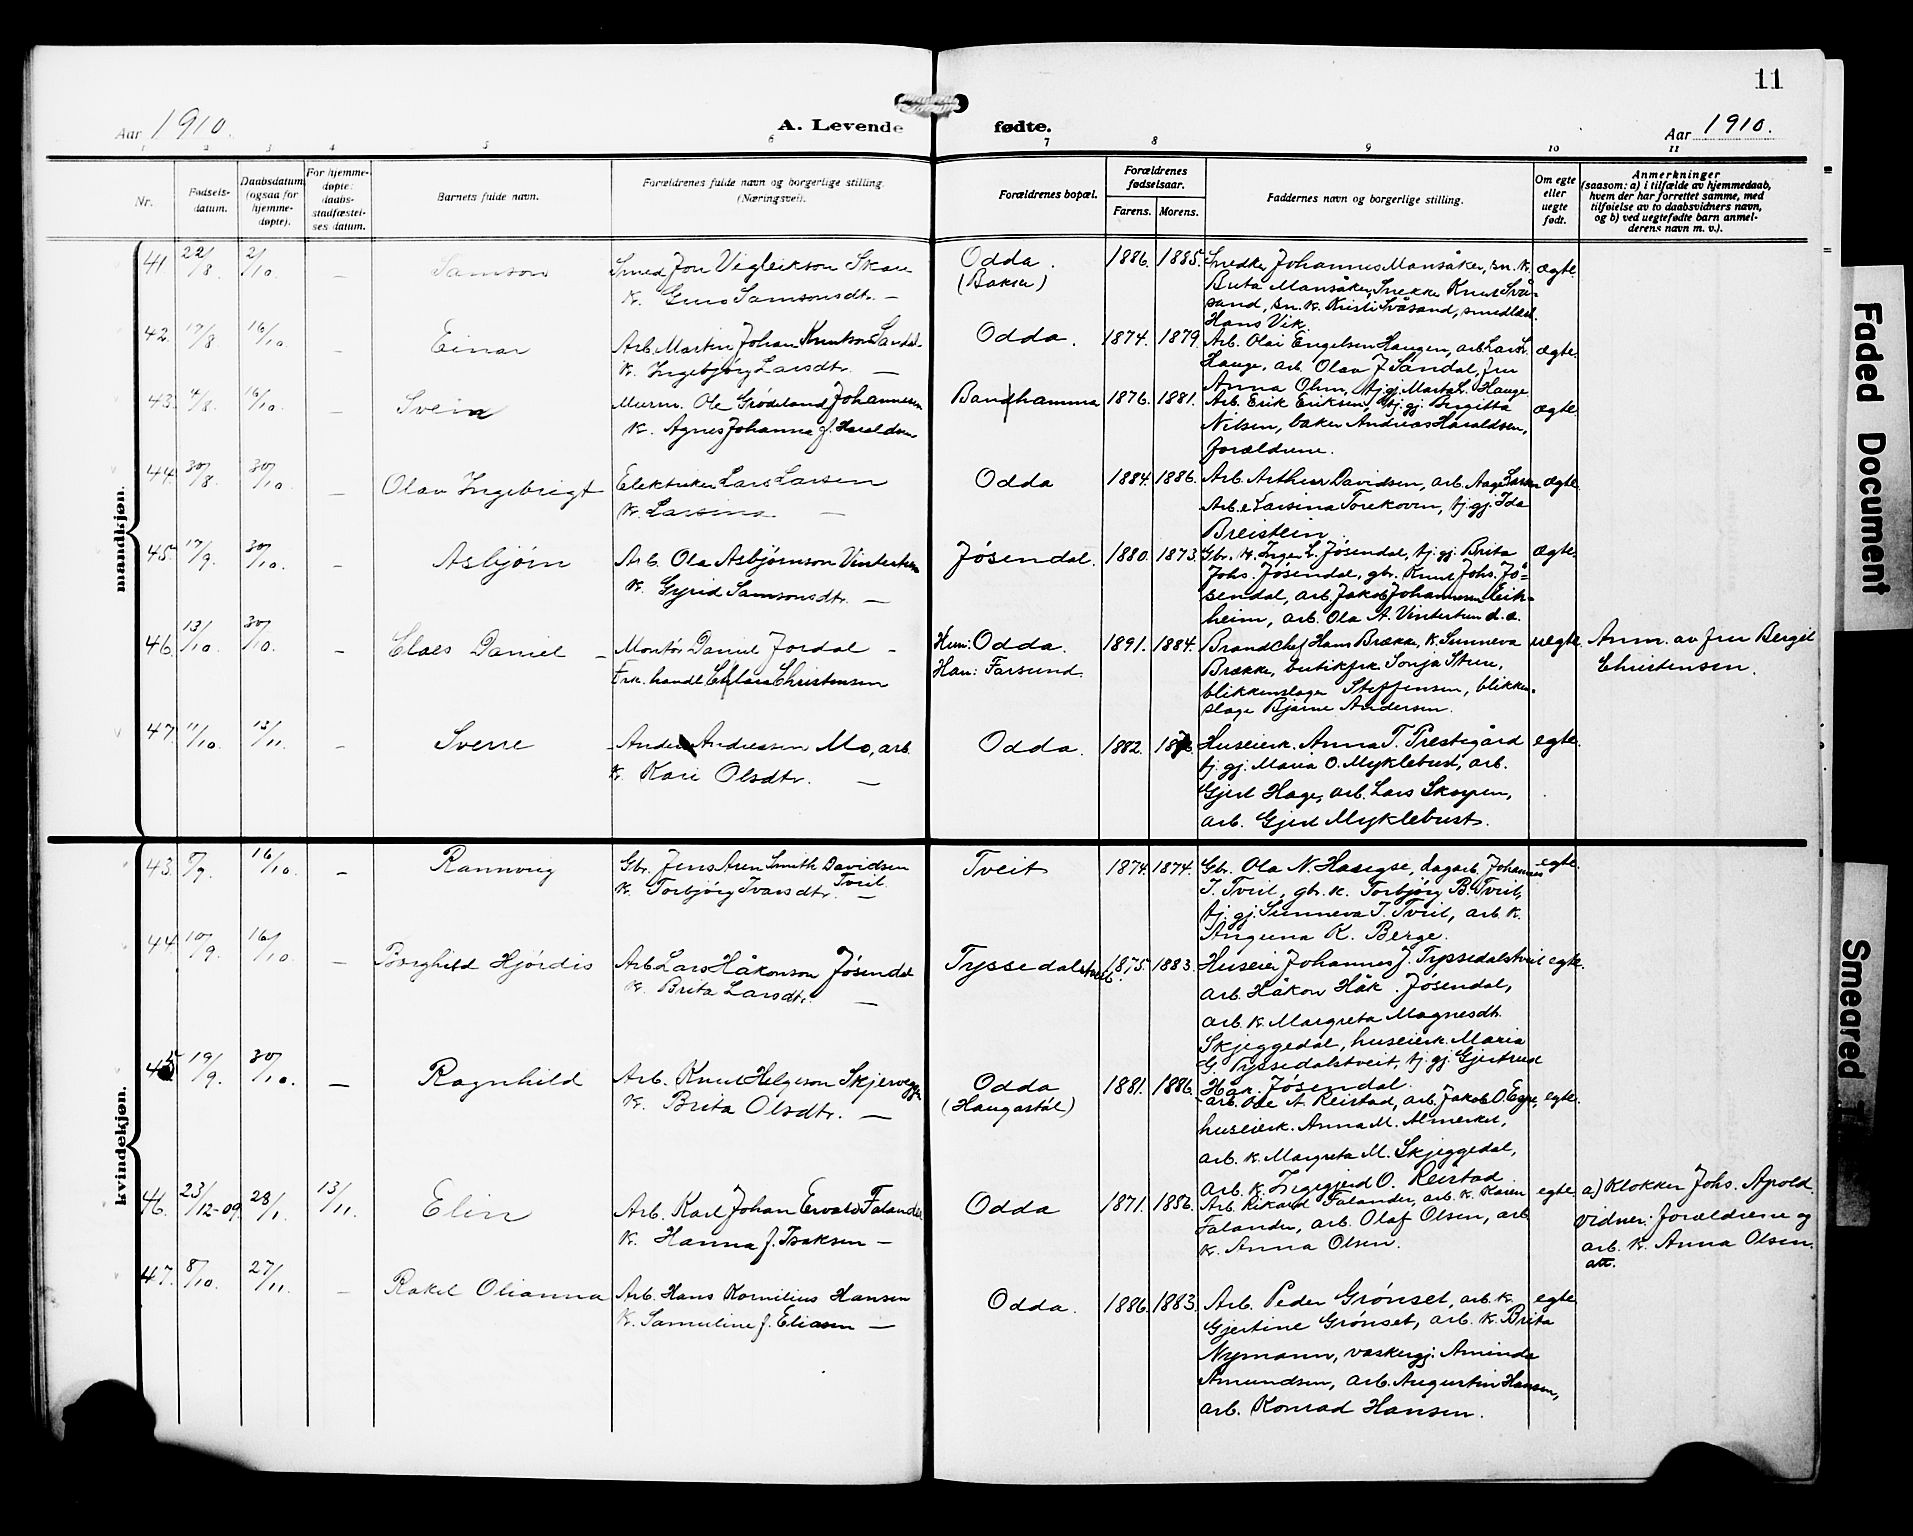 11
Aar 1910.
A. Levende fødte.
Aar 1910.
1 2 3 4 5 6 7 8 9 10 11
Nr.
Fødsels-
datum.
Daabsdatum
(ogsaa for
hjemme-
døpte).
For hjemme-
døpte:
daabs-
stadfæstel-
ses datum.
Barnets fulde navn.
Forældrenes fulde navn og borgerlige stilling.
(Næringsvei).
Forældrenes bopæl.
Forældrenes
fødselsaar.
Farens. Morens.
Faddernes navn og borgerlige stilling.
Om egte
eller
uegte
født.
Anmerkninger
(saasom: a) i tilfælde av hjemmedaab,
hvem der har forrettet samme, med
tilføielse av to daabsvidners navn,
og b) ved uegtefødte barn anmel-
derens navn m. v.).
mandkjøn.
41 22/8 2/10. - Samson
Smed Jon Vigleikson Skare
k. Guro Samsonsdtr. -
Odda.
(Bakke)
1886. 1885.
Snedker Johannes Mansåker, sn. k.
Brita Mansåker, Snekker Knut Svå-
sand, sn. k. Kristi Svåsand, smedlærl.
Hans Vik.
ægte
42. 17/8 16/10. - Einar
Arb. Martin Johan Knutson Sandal.
k. Ingebjørg Larsdtr. -
Odda.
1874. 1879.
Arb. Olai Engelsen Haugen, arb. Lars L.
Hauge, arb. Olav J. Sandal, fru
Anna Ohm, tj. gj. Marta L. Hauge
ægte.
43. 4/8. 16/10. - Svein
Murm. Ole Grødeland Johannesen
k. Agnes Johanna f. Haraldsen
Bandhamma
1876. 1881.
Arb. Erik Eriksen, tj. gj. Birgitta
Nilsen, baker Andreas Haraldsen,
forældrene.
ægte
44. 30/8. 30/10. - Olav Ingebrigt
Elektriker Lars Larsen
k. Larsina -
Odda
1884. 1886.
Arb. Arthur Davidsen, arb. Aage Larsen
Arb. e Larsina Torekoven, tj. gj. Ida
Breistein.
ægte.
45. 17/9. 30/10. Asbjørn
Arb. Ola Asbjørnson Vintertun
k. Gyrid Samsonsdtr. -
Jøsendal.
1880. 1873.
Gbr. k. Inger L. Jøsendal, tj. gj. Brita
Johs. Jøsendal, gbr. Knut Johs. Jø-
sendal, arb. Jakob Johannesen Eik-
heim, arb. Ola A. Vintertun d. a.
ægte
46. 13/10. 30/10. - Claes Daniel -
Montør Daniel Jordal -
Frk. handl Chlara Christensen
Hun: Odda.
Han: Farsund.
1891. 1884.
Brandchef Hans Brække, k. Sunneva
Brække, butikfrk. Sonja Stene,
blikkenslager Steffensen, blikken-
slager Bjarne Andersen.
uegte
Anm. av fru Bergit
Christensen.
47. 11/10. 13/11. - Sverre
Anders Andreassen Mo, arb
k. Kari Olsdtr. -
Odda.
1882.
Huseierk. Anna T. Prestegård
tj. gj. Maria O. Myklebust, arb.
Gjert Hage, arb. Lars Skarpen,
arb. Gjert Myklebust.
egte.
kvindekjøn.
43. 5/9. 16/10. - Rannveig
Gbr. Jens Aren Smith Davidsen
k. Torbjørg Ivarsdtr. Tveit. -
Tveit
1874. 1874.
Gbr. Ola N. Hasegse, dagarb. Johannes
T. Tveit, gbr. k. Torbjørg B. Tveit,
tj. gj. Sunneva J. Tveit, arb. k.
Anguna K. Berge.
egte.
44. 10/9. 16/10. - Borghild Hjørdis
Arb. Lars Håkonson Jøsendal
k. Brita Larsdtr. -
Tyssedalstveit.
1875. 1883.
Huseier Johannes J. Tyssedalstveit
arb. Håkon Håk. Jøsendal,
arb. k. Margreta Magnesdtr.
Skjeggedal, huseierk. Maria
G. Tyssedalstveit, tj. gj. Gjertrud
Håk. Jøsendal.
egte.
45 19/9. 30/10. - Ragnhild
Arb. Knut Helgeson Skjervegge
k. Brita Olsdtr. -
Odda
(Haugastøl)
1881. 1886.
arb. Ole A. Reistad, arb. Jakob O. Egre,
huseierk. Anna M. Almerket,
arb. k. Margreta M. Skjeggedal,
arb. k. Ingegjerd O. Reistad
egte.
46. 23/12-09. 28/1. 13/11. Elin
Arb. Karl Johan Ervald Falander
k. Hanna f. Isaksen -
Odda
1871. 1886.
Arb. Rikard Falander, arb. k. Karen
Falander, arb. Olaf Olsen, arb.
k. Anna Olsen.
egte.
a) Klokker Johs. Apold.
vidner: forældrene og
arb. k. Anna Olsen.
att.
47. 8/10. 27/11. - Rakel Olianna
Arb. Hans Kornilius Hansen
k. Samuline f. Eliasen -
Odda.
1886. 1883.
Arb. Peder Grønset, arb. k.
Gjertine Grønset, arb. k. Brita
Nymann, vaskergj. Aminda
Amundsen, arb. Augustin Hansen,
arb. Konrad Hansen.
egte
Faded Document
Smeared